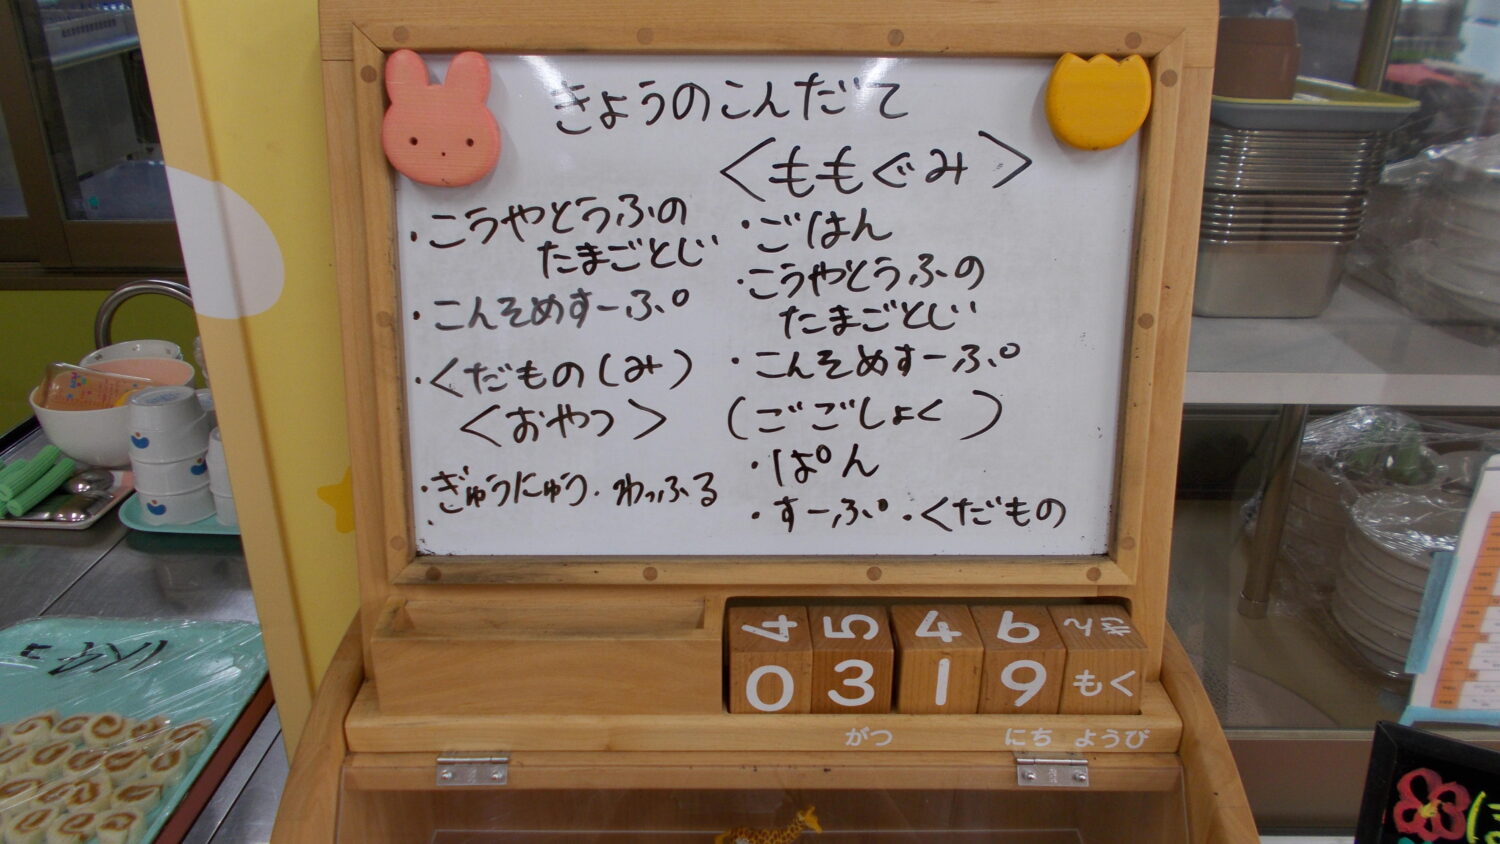 きょうのこんだて
・こうやとうふの
たまごとじ
・こんそめすーぷ
・くだもの(み)
<おやつ>
・ぎゅうにゅう・わっふる
<ももぐみ>
・ごはん
・こうやとうふの
たまごとじ
・こんそめすーぷ
(ごごしょく)
・ぱん
・すーぷ・くだもの
4 5 4 6 きん
0 3 1 9 もく
がつ にち ようび